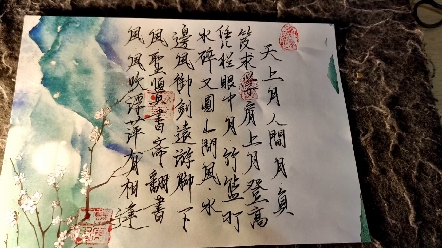 天上月人間月負
笈求學肩上月登高
憑栏眼中月竹籃打
水碎又圓山間風水
邊風御劍遠遊腳下
風聖賢書齋翻書
風風吹浮萍有相逢